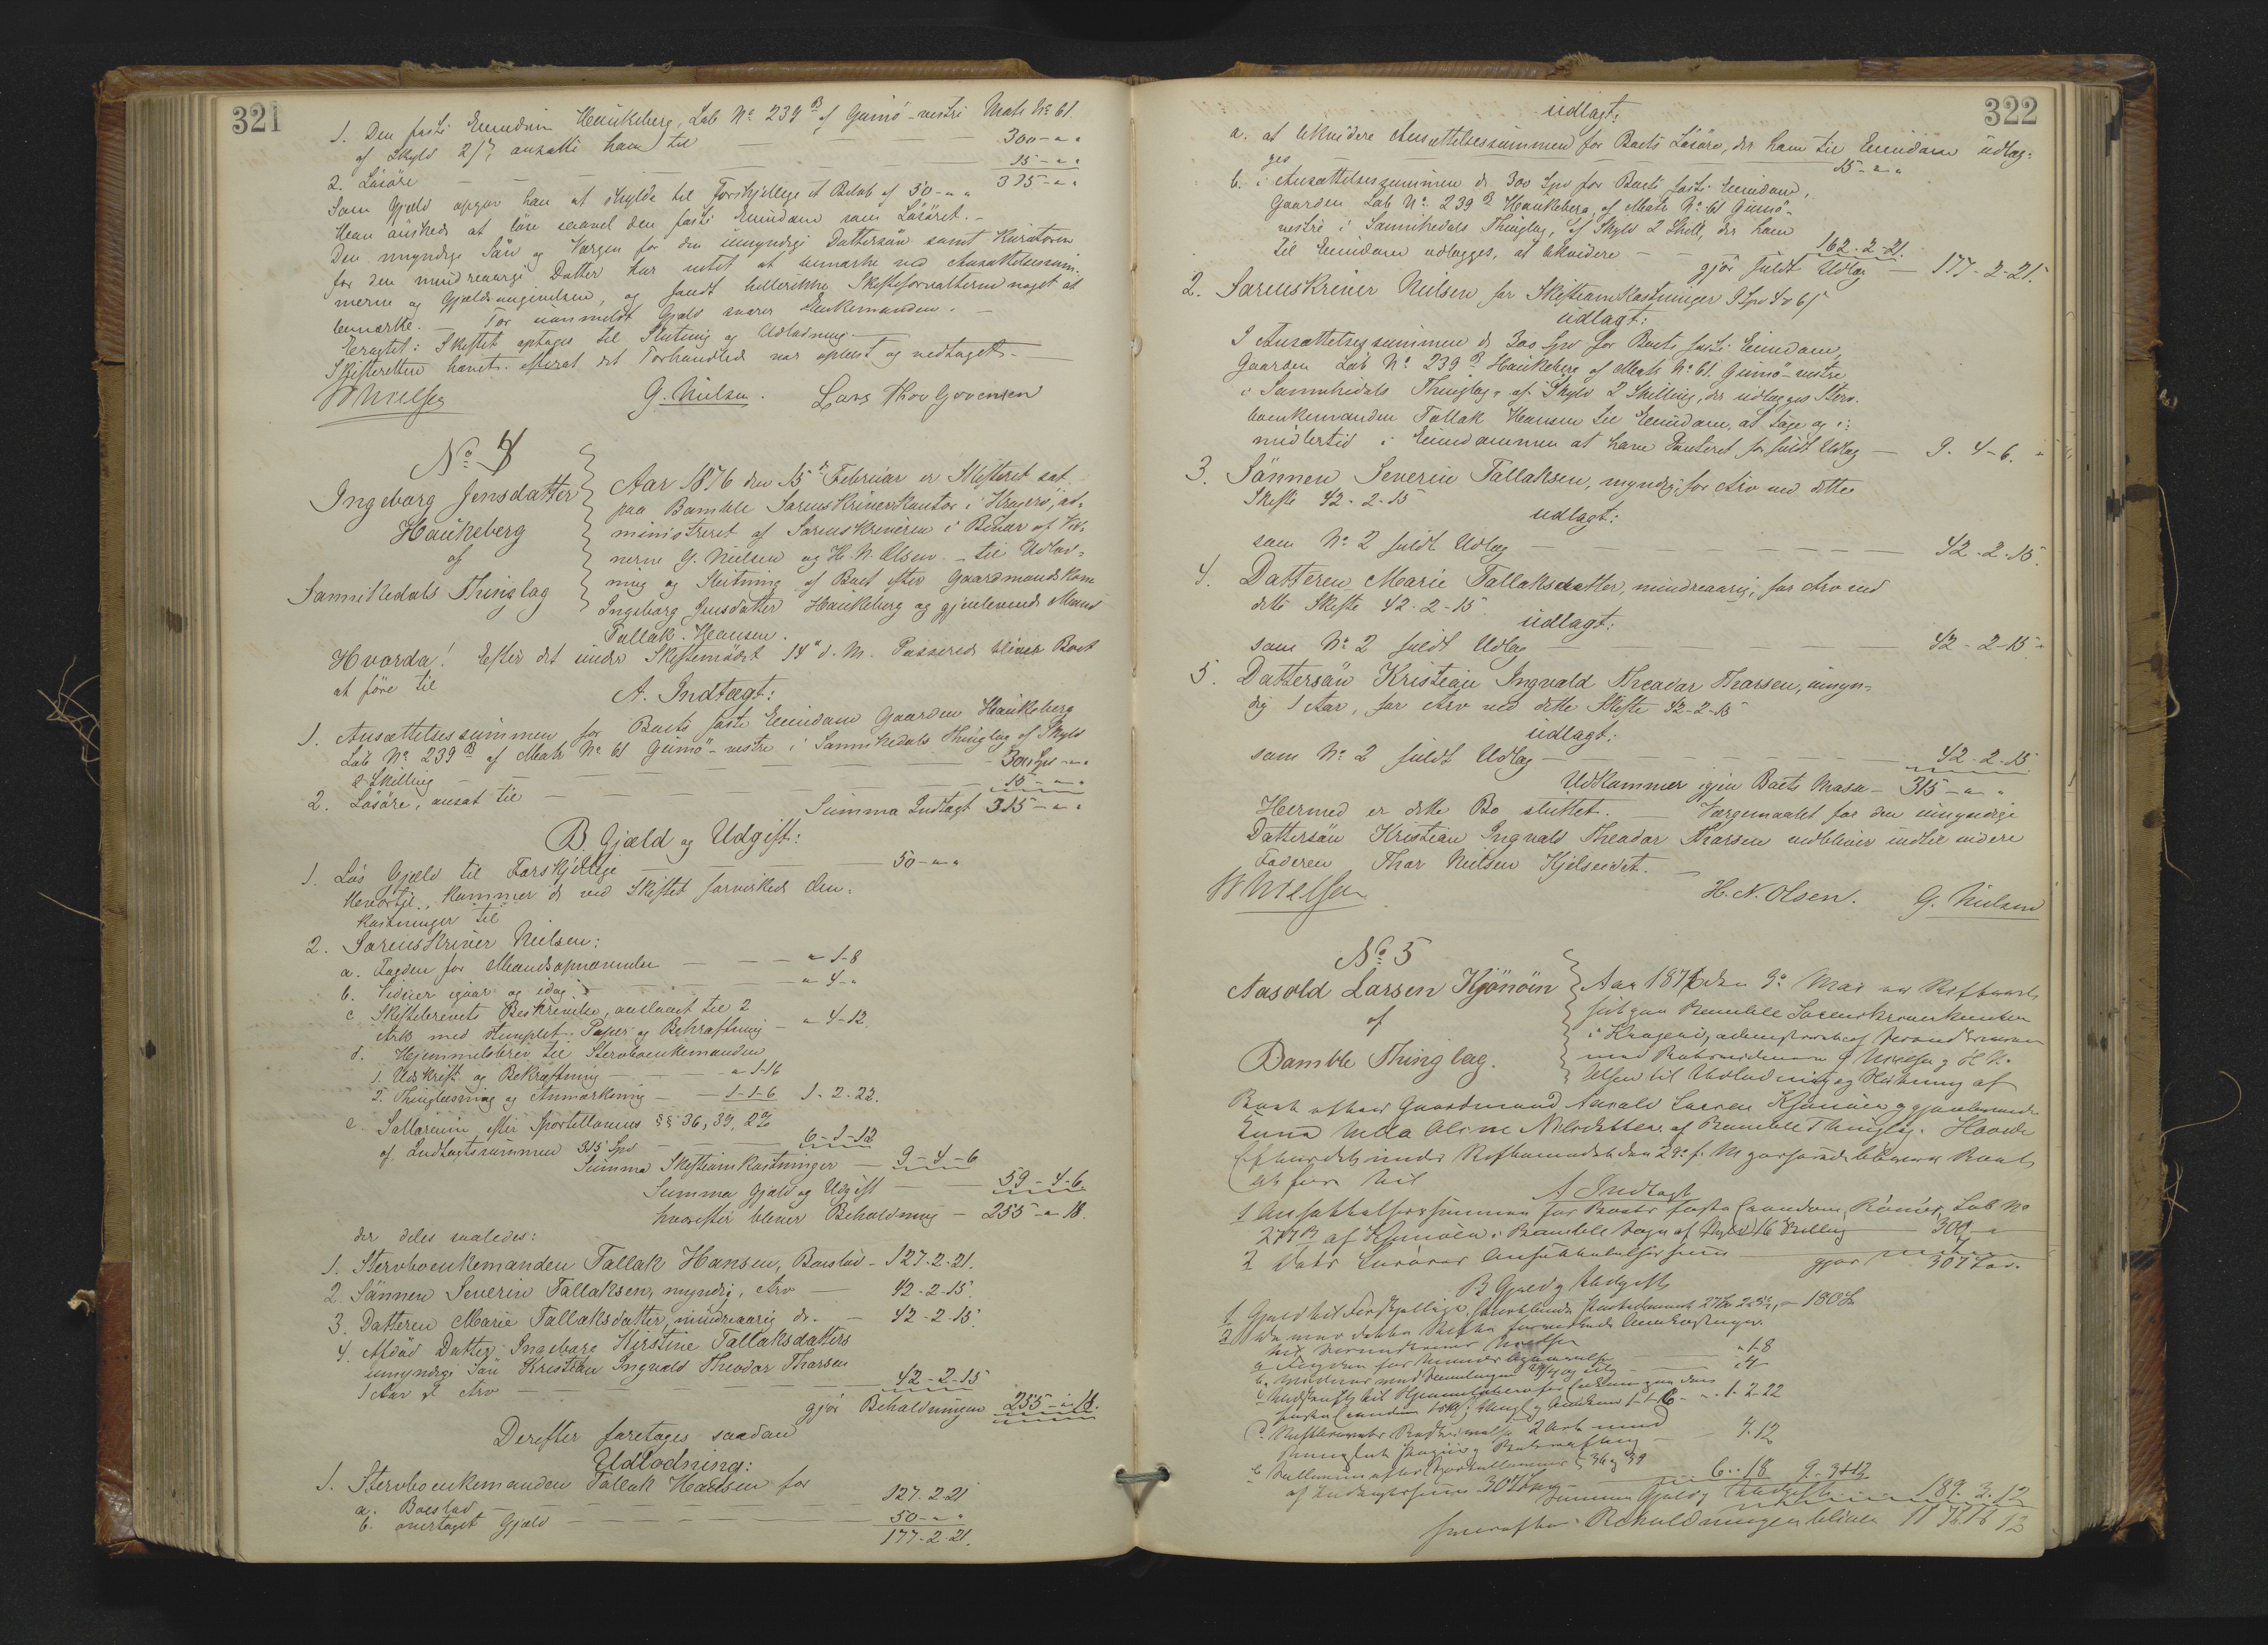 321
1. Den faste Eiendom Haukeberg, Løb No 239 B af Gumø-vestre Matr No 61.
af Skyld 2 ß, ansatte han til — 300-"-"
2. Løsøre — 15-"-"
315-"-"
Som Gjæld opgav han at skylde til Forskjellige et Beløb af 50-"-"
Han ønskede at løse saavel den faste Eiendom som Løsøret.-
Den myndige Søn og Værgen for den umyndige Dattersøn samt Kuratoren
for den mindreaarige Datter har intet at bemærke ved Ansættelsessum-
merne og Gjældsangivelsen, og fandt hellerikke Skifteforvalteren noget at
bemærke. — For uanmeldt Gjæld svarer Enkemanden. -
Eragtet: Skiftet optages til Slutning og Udlodning.-
Skifteretten hævet efterat det Forhandlede var oplæst og vedtaget.-
W Nielsen G. Nielsen. Lars Thor Gjvensen
No 4
Ingeborg Jensdatter
Haukeberg
af
Sannikedals Thinglag
Aar 1876 den 15de Februar er Skifteret sat
paa Bamble Sorenskriverkontor i Kragerø, ad-
ministreret af Sorenskriveren i Bivær af Vid-
nerne G. Nielsen og H. N. Olsen. - til Udlod-
ning og Slutning af Boet efter Gaardmandskone
Ingeborg Jensdatter Haukeberg og gjenlevende Mand
Tallak Hansen.
Hvorda! Efter det under Skiftemødet 14de d. M. Passerede bliver Boet
at føre til
A. Indtægt:
1. Ansættelsessummen for Boets faste Eiendom Gaarden Haukeberg
Løb No 239 B af Matr No 61 Gumø-vestre i Sannikedals Thinglag af Skyld
2 Skilling — 300 Spd-"-"
2. Løsøre, ansat til — 15-"-"
Summa Indtægt 315-"-"
B. Gjæld og Udgift:
1. Løs Gjæld til Forskjellige — 50-"-"
Hvortil kommer de ved Skiftet forvirkede Om-
kostninger til
2. Sorenskriver Nielsen:
a. Fogden for Mandsopnævnelse — "-1-8
b. Vidner igaar og idag — "-4-"
c. Skiftebrevets Beskrivelse, anslaaet til 2
Ark med stemplet Papir og Bekræftning — "-4-12.
d. Hjemmelsbrev til Stervboenkemanden
1. Udskrift og Bekræftning — "-1-16
2. Thinglæsning og Anmærkning — 1-1-6 1-2-22.
e. Sallarium efter Sportellovens §§ 36, 39, 2%
af Indtægtssummen 315 Spd — 6-1-12
Summa Skifteomkostninger — 9-4-6
Summa Gjæld og Udgift — 59-4-6
hvorefter bliver Beholdning — 255-"-18.
der deles saaledes:
1. Stervboenkemanden Tallak Hansen, Boeslod - 127-2-21.
2. Sønnen Severin Tallaksen, myndig, Arv — 42-2-15.
3. Datteren Marie Tallaksdatter, mindreaarig do. — 42-2-15.
4. Afdød Datter Ingeborg Kirstine Tallaksdatters
umyndige Søn Kristian Ingvald Theodor Tharsen
1 Aar gl. Arv — 42-2-15
gjør Beholdningen 255-"-18.
Derefter foretages saadan
Udlodning:
1. Stervboenkemanden Tallak Hansen for
a. Boeslod — 127-2-21
b. overtaget Gjæld — 50-"-"
177-2-21.
322
udlagt:
a. at likvidere Ansættelsessummen for Boets Løsøre, der ham til Eiendom udlæg-
ges — 15-"-"
b. i Ansættelsessummen de 300 Spd for Boets faste Eiendom,
Gaarden Løb No 239 B Haukeberg, af Matr No 61 Gumø-
vestre i Sannikedals Thinglag, af Skyld 2 Skill, der ham
til Eiendom udlægges, at likvidere — 162-2-21.
gjør fuldt Udlæg — 177-2-21.
2. Sorenskriver Nielsen for Skifteomkostninger 9 Spd 4 # 6 ß
udlagt:
I Ansættelsessummen de 300 Spd for Boets faste Eiendom,
Gaarden Løb No 239 B Haukeberg af Matr No 61. Gumø-vestre
i Sannikedals Thinglag, af Skyld 2 Skilling, der udlægges Sterv-
boenkemanden Tallak Hansen til Eiendom, at søge og i-
midlertid i Eiendommen at have Panteret for fuldt Udlæg — 9-4-6.
3. Sønnen Severin Tallaksen, myndig, for Arv ved dette
Skifte 42-2-15
udlagt:
som No 2 fuldt Udlæg — 42-2-15.
4. Datteren Marie Tallaksdatter, mindreaarig, for Arv ved
dette Skifte 42-2-15.
udlagt:
som No 2 fuldt Udlæg — 42-2-15
5. Dattersøn Kristian Ingvald Theodor Tharsen, umyn-
dig 1 Aar, for Arv ved dette Skifte 42-2-15
udlagt:
som No 2 fuldt Udlæg — 42-2-15
Udkommer igjen Boets Masse — 315-"-"
Hermed er dette Bo sluttet. — Værgemaalet for den umyndige
Dattersøn Kristian Ingvald Theodor Tharsen vedbliver indtil videre
Faderen Thor Nielsen Kjelseidet.
W Nielsen H. N. Olsen. G. Nielsen
No 5
Aasold Larsen Kjønøen
af
Bamble Thinglag.
Aar 1876 den 9de Mai var Skifteret
sat paa Bamble Sorenskriverkontor
i Kragerø, administreret af Sorenskriveren
med Retsvidnerne G Nielsen og H. N.
Olsen til Udlodning og Slutning af
Boet efter Gaardmand Aasold Larsen Kjønøen og gjenlevende
Enke Oline Nilsdatter af Bamble Thinglag. Hvorda
Efter det under Skiftemødet den 29de f. M passerede bliver Boet
at føre til
A Indtægt
1 Ansættelsessummen for Boets faste Eiendom, Rønæs, Løb No
277 B af Kjønøen i Bamble Sogn af Skyld 16 Skilling 300 "
2 Dets Løsøres Ansættelsessum 7
gjør 307 Spd.
B Gjæld og Udgift
1 Gjæld til Forskjellige — 180 Spd
2
"1-8
"4-
1-1-6 — "-1-2-22
4-12
§ 36 og 39
af Indtægtssummen 307 Spd 6-"-18 9-3-12
Summa Gjæld og Udgift 189. 3. 12
hvorefter Beholdningen bliver 117